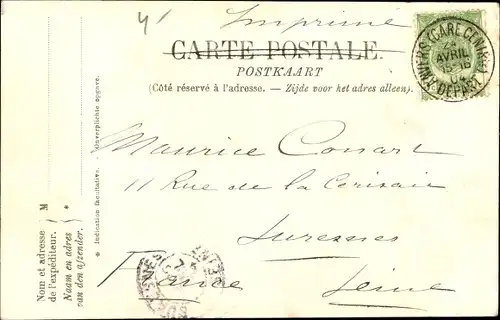 Imprimé
CARTE POSTALE.
POSTKAART
(Côté réservé à l'adresse. — Zijde voor het adres alleen).
ANVERS (GARE CENTRALE)
AVRIL
16
04
DEPART
Maurice Consart
11 Rue de la Cerisaie
Suresnes
France Seine
SURESNES
SEINE
M
Nom et adresse
de l'expéditeur.
Naam en adres
van den afzender.
*
* Indication facultative. Onverplichte opgave.